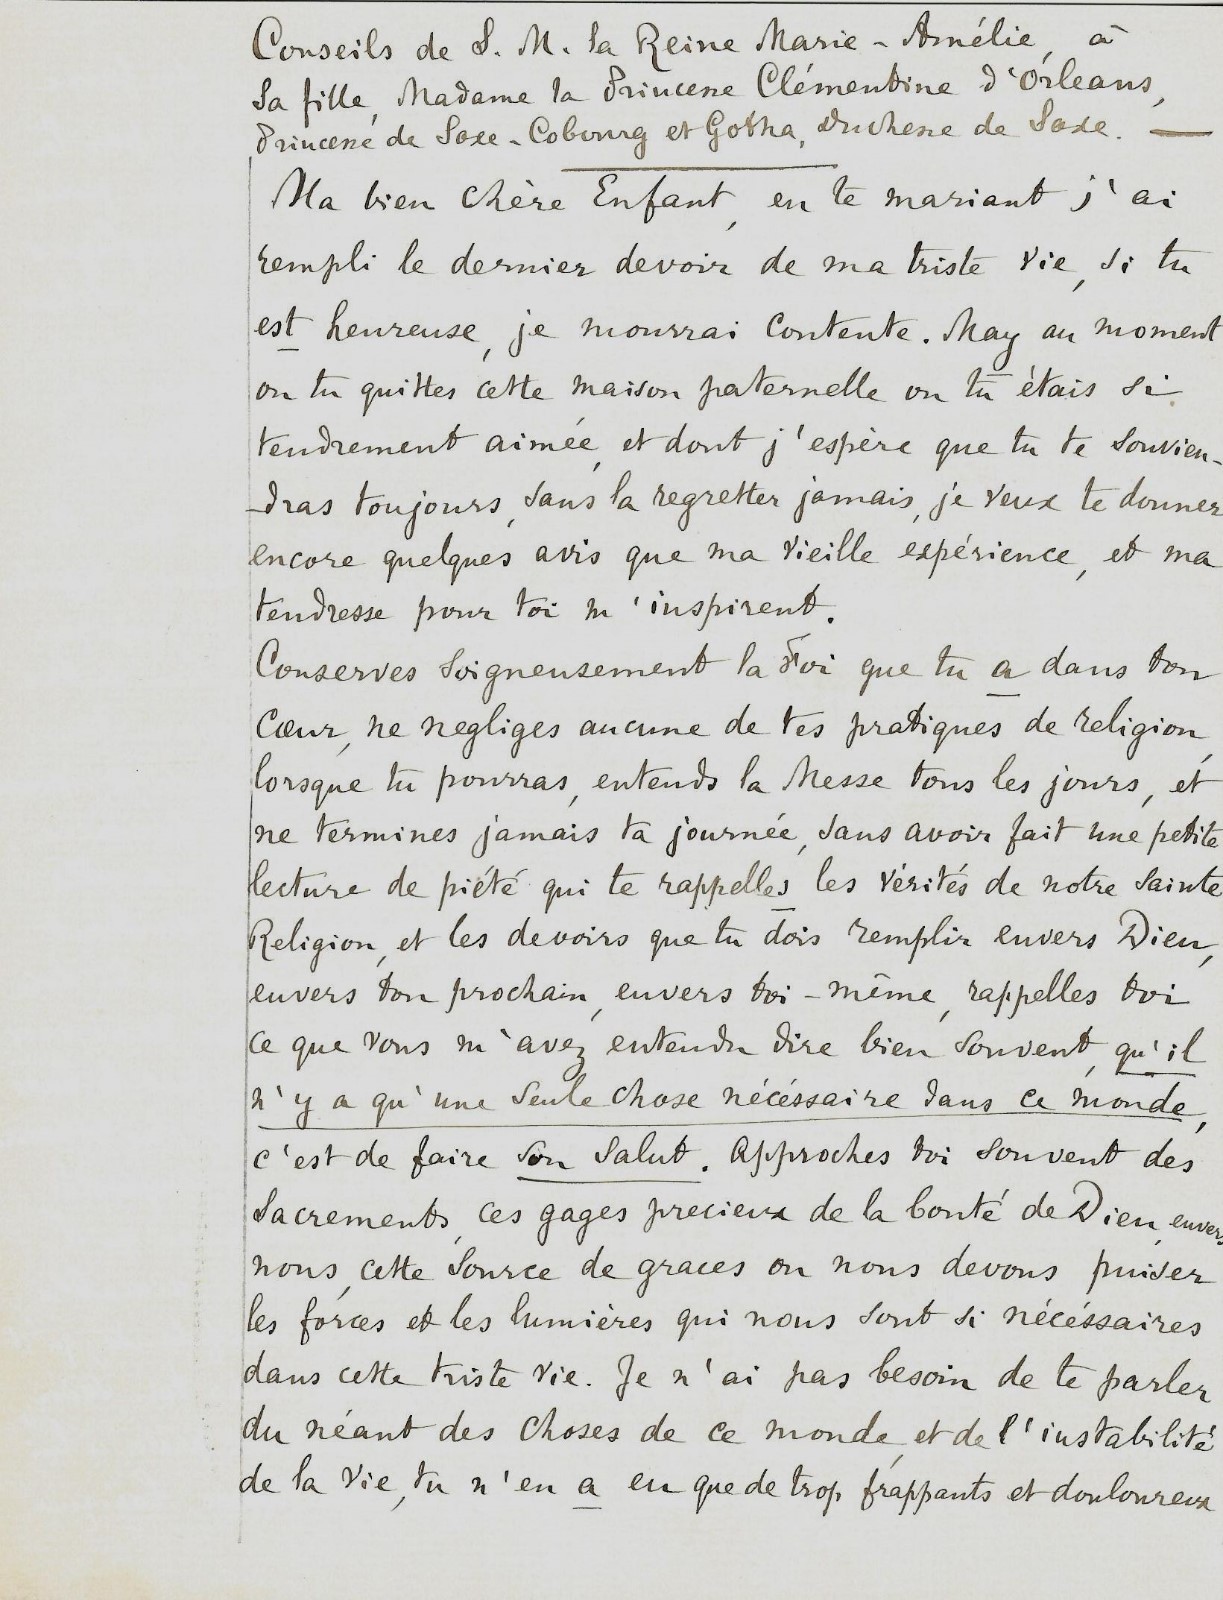 Conseils de S. M. la Reine Marie-Amélie, à
sa fille, Madame la Princesse Clémentine d'Orleans,
Princesse de Saxe-Cobourg et Gotha, Duchesse de Saxe. —
Ma bien chère Enfant, en te mariant j'ai
rempli le dernier devoir de ma triste vie, si tu
est heureuse, je mourrai contente. May au moment
ou tu quittes cette maison paternelle ou tu étais si
tendrement aimée, et dont j'espère que tu te souvien-
-dras toujours, sans la regretter jamais, je veux te donner
encore quelques avis que ma vieille expérience, et ma
tendresse pour toi m'inspirent.
Conserves soigneusement la Foi que tu a dans ton
Cœur, ne negliges aucune de tes pratiques de religion,
lorsque tu pourras, entends la Messe tous les jours, et
ne termines jamais ta journée, sans avoir fait une petite
lecture de piété qui te rappelles les vérités de notre Sainte
Religion, et les devoirs que tu dois remplir envers Dieu,
envers ton prochain, envers toi-même, rappelles toi
ce que vous m'avez entendu dire bien souvent, qu'il
n'y a qu'une seule chose nécéssaire dans ce monde,
c'est de faire son salut. Approches toi souvent des
Sacrements, ces gages precieux de la bonté de Dieu, envers
nous, cette source de graces ou nous devons puiser
les forces et les lumières qui nous sont si nécéssaires
dans cette triste vie. Je n'ai pas besoin de te parler
du néant des choses de ce monde, et de l'instabilité
de la vie, tu n'en a eu que de trop frappants et douloureux